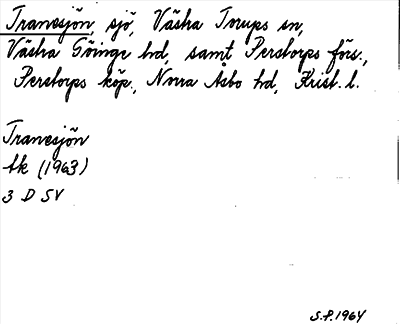 Tranesjön, sjö, Västra Torups sn,
Västra Göinge hd, samt Perstorps förs.,
Perstorps köp., Norra Åsbo hd, Krist. l.
Tranesjön
tk (1963)
3 D SV
S.P. 1964